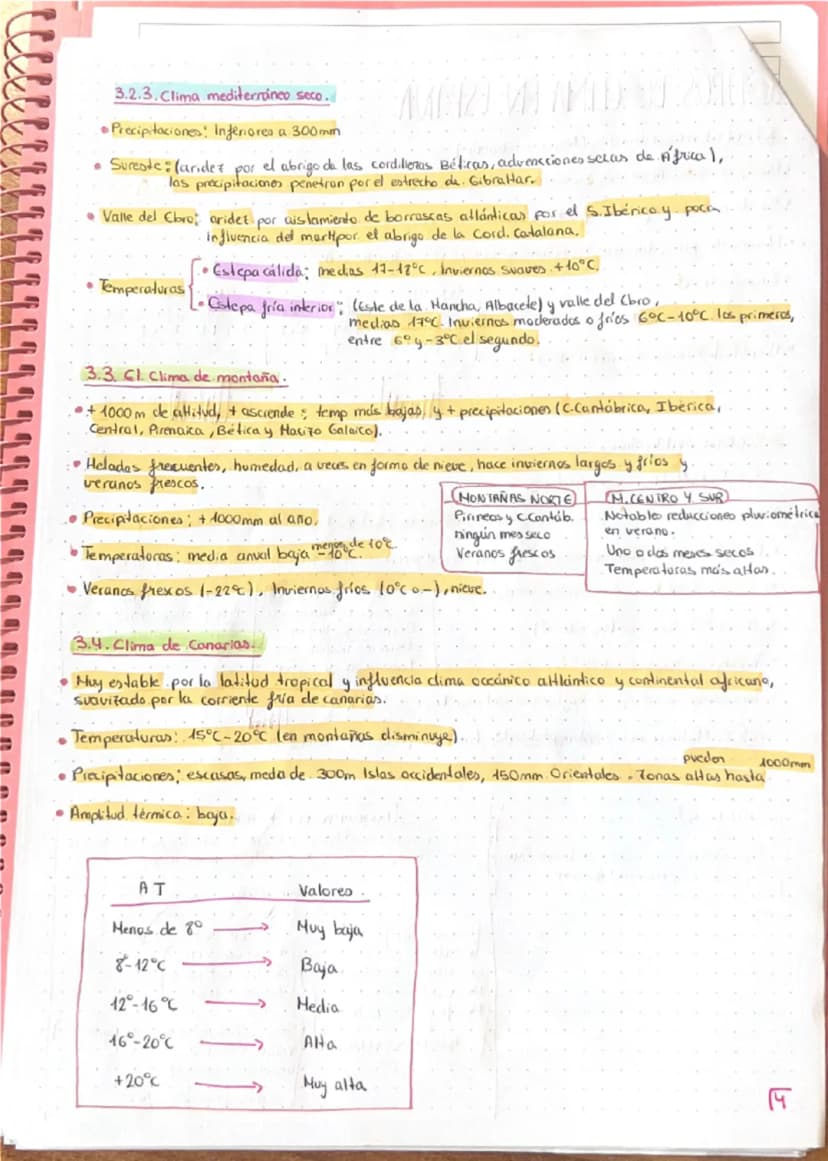 3.2.3. Clima mediterráneo seco.
• Precipitaciones: Inferiores a 300mm
• Sureste: (aridez por el abrigo de las cordilleras Béticas, advencciones secas de África),
las precipitaciones penetran por el estrecho de Gibraltar.
• Valle del Ebro: aridez por aislamiento de borrascas atlánticas por el S. Ibérico y poca
influencia del mar por el abrigo de la Cord. Catalana.
• Temperaturas
• Estepa cálida: medias 17-18°C, Inviernos suaves +10°C.
• Estepa fría interior: (Este de la Mancha, Albacete) y valle del Ebro,
medias 17°C. Inviernos moderados o fríos 6°C-10°C los primeros,
entre 6° y -3°C el segundo.
3.3. Cl. Clima de montaña.
• + 1000 m de altitud, + asciende: temp más bajas, y + precipitaciones (C. Cantábrica, Ibérica,
Central, Pirenaica, Bética y Macizo Galaico).
• Heladas frecuentes, humedad, a veces en forma de nieve, hace inviernos largos y fríos y
veranos frescos.
• Precipitaciones: + 1000mm al año.
• Temperaturas: media anual baja menos de 10°C -10°C.
• Veranos frescos (-22°C), Inviernos fríos (0°C o -), nieve.
MONTAÑAS NORTE
Pirineos y C.Cantáb.
ningún mes seco
Veranos frescos
M. CENTRO Y SUR
Notable reducciones pluviométrica
en verano.
Uno o dos meses secos
Temperaturas más altas.
3.4. Clima de Canarias.
• Muy estable por la latitud tropical y influencia clima oceánico atlántico y continental africano,
suavizado por la corriente fría de canarias.
• Temperaturas: 15°C-20°C (en montañas disminuye).
• Precipitaciones: escasas, meda de 300m Islas occidentales, 150mm Orientales. Zonas altas pueden hasta 1000mm
• Amplitud térmica: baja.
AT Valores
Menos de 8° → Muy baja
8°-12°C → Baja
12°-16°C → Media
16°-20°C → Alta
+20°C → Muy alta
4